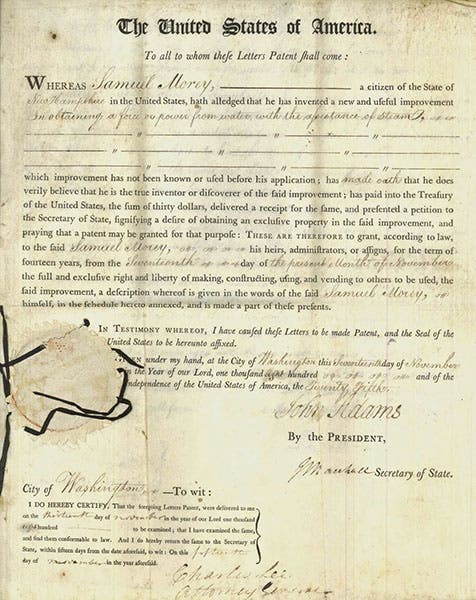 The United States of America.
To all to whom theſe Letters Patent ſhall come:
WHEREAS Samuel Morey, a citizen of the State of
New Hampshire in the United States, hath alledged that he has invented a new and uſeful improvement
in obtaining a force or power from water, with the assistance of Steam,
" " " "
" " " "
" " " "
which improvement has not been known or uſed before his application; has made oath that he does
verily believe that he is the true inventor or diſcoverer of the ſaid improvement; has paid into the Treaſury
of the United States, the ſum of thirty dollars, delivered a receipt for the ſame, and preſented a petition to
the Secretary of State, ſignifying a deſire of obtaining an excluſive property in the ſaid improvement, and
praying that a patent may be granted for that purpoſe: THESE ARE THEREFORE to grant, according to law,
to the ſaid Samuel Morey, his heirs, adminiſtrators, or aſſigns, for the term of
fourteen years, from the Seventeenth day of the present Month of November
the full and excluſive right and liberty of making, conſtructing, uſing, and vending to others to be uſed, the
ſaid improvement, a deſcription whereof is given in the words of the ſaid Samuel Morey,
himſelf, in the ſchedule hereto annexed, and is made a part of theſe preſents.
IN TESTIMONY WHEREOF, I have cauſed theſe Letters to be made Patent, and the Seal of the
United States to be hereunto affixed.
under my hand, at the City of Washington this Seventeenth day of November
in the Year of our Lord, one thouſand eight hundred and of the
Independence of the United States of America, the Twenty Fifth.
John Adams
By the PRESIDENT,
J Marshall Secretary of State.
City of Washington, —To wit:
I DO HEREBY CERTIFY, That the foregoing Letters Patent, were delivered to me
on the thirteenth day of november in the year of our Lord one thouſand
eight hundred to be examined; that I have examined the ſame,
and find them conformable to law. And I do hereby return the ſame to the Secretary of
State, within fifteen days from the date aforeſaid, to wit: On this fifteenth
day of november in the year aforeſaid.
Charles Lee
Attorney General